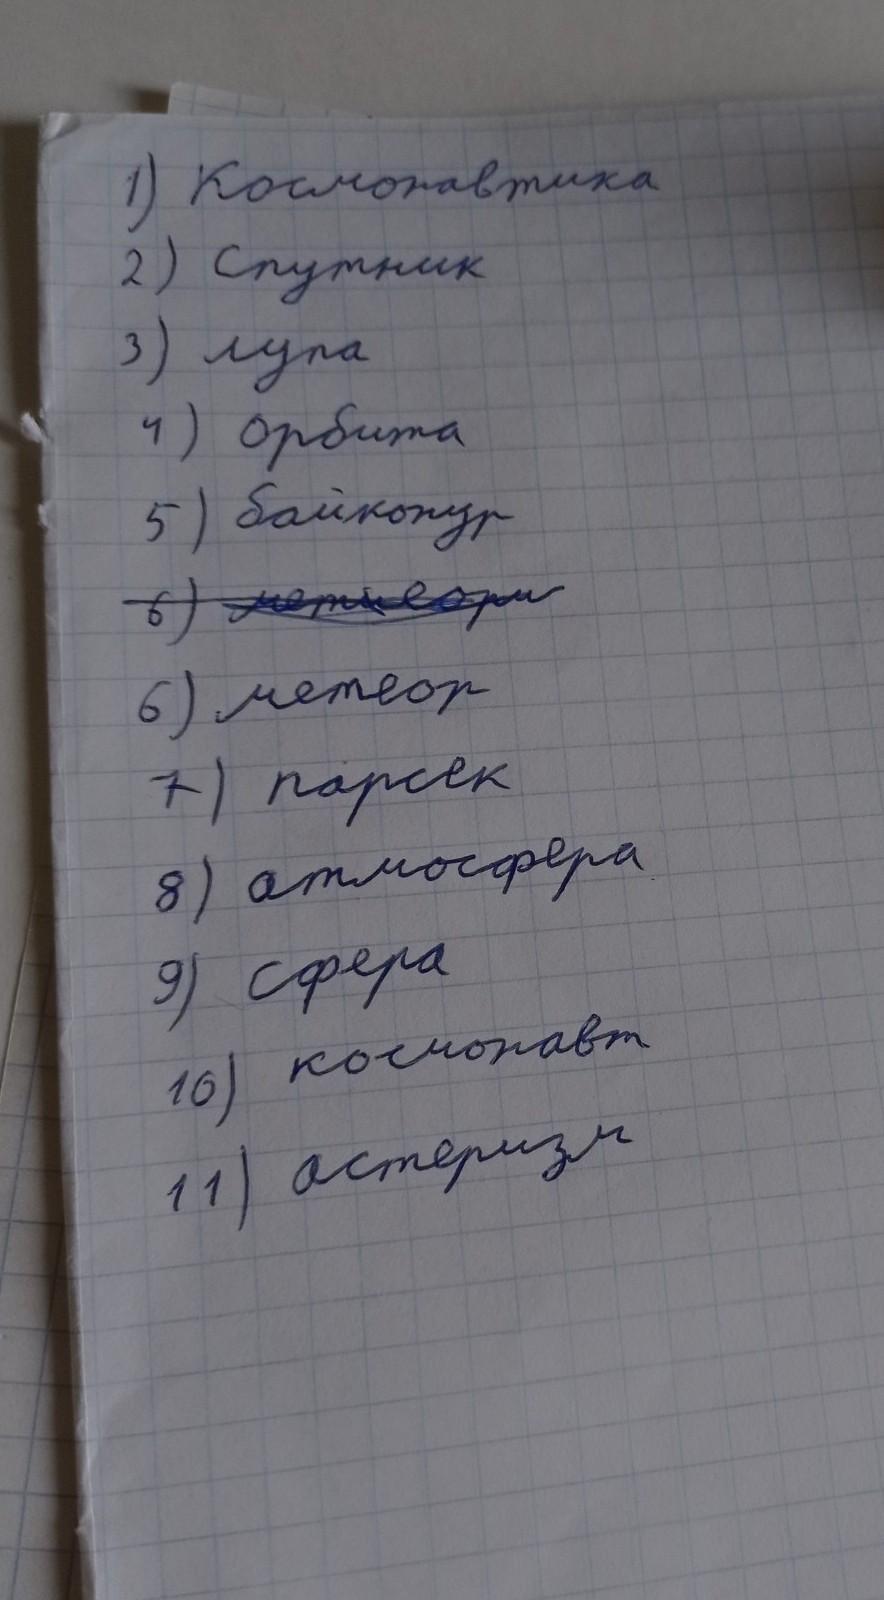 1) Космонавтика
2) Спутник
3) луна
4) орбита
5) байконур
6) метиеори
6) метеор
7) парсек
8) атмосфера
9) сфера
10) космонавт
11) астеризм